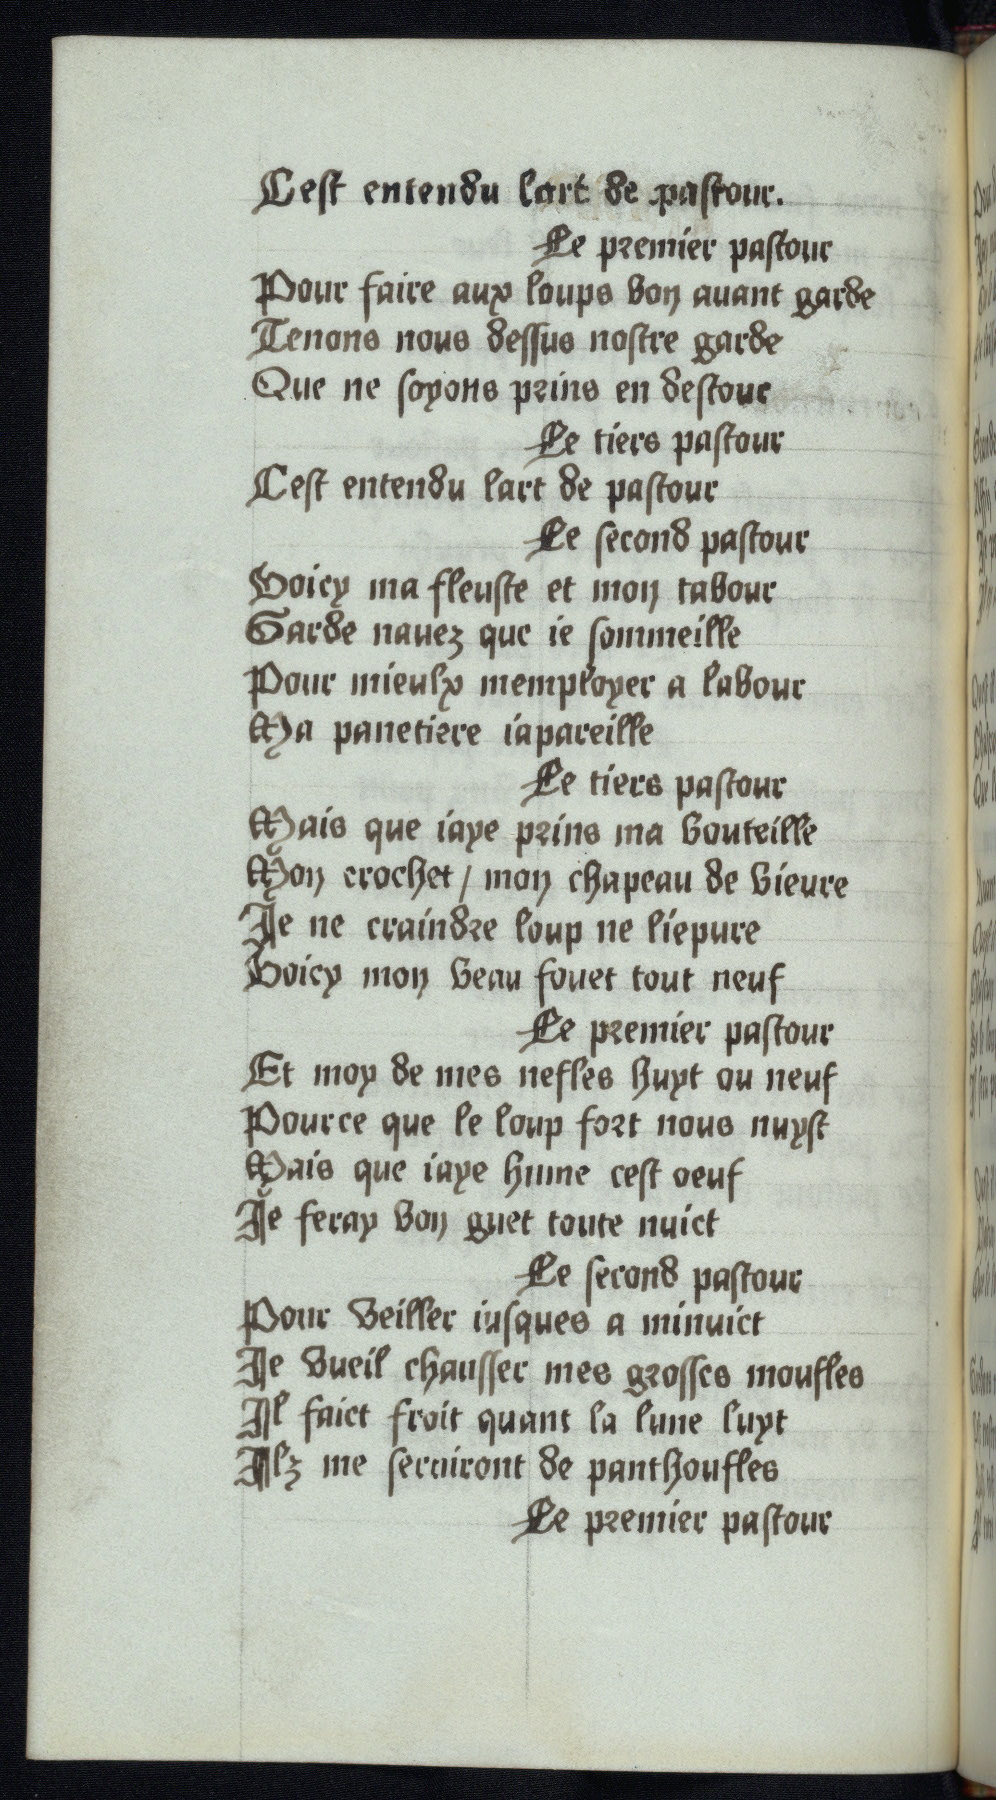 Cest entendu lart de pastour.
Le premier pastour
Pour faire aux loups bon auant garde
Tenons nous dessus nostre garde
Que ne soyons prins en destour
Le tiers pastour
Cest entendu lart de pastour
Le second pastour
Voicy ma fleuste et mon tabour
Garde nauez que ie sommeille
Pour mieulx memployer a labour
Ma panetiere iapareille
Le tiers pastour
Mais que iaye prins ma bouteille
Mon crochet / mon chapeau de bieure
Je ne craindre loup ne liepure
Voicy mon beau fouet tout neuf
Le premier pastour
Et moy de mes nefles huyt ou neuf
Pource que le loup fort nous nuyst
Mais que iaye hume cest oeuf
Je feray bon guet toute nuict
Le second pastour
Pour veiller iusques a minuict
Je vueil chausser mes grosses moufles
Il faict froit quant la lune luyt
Ilz me seruiront de panthoufles
Le premier pastour